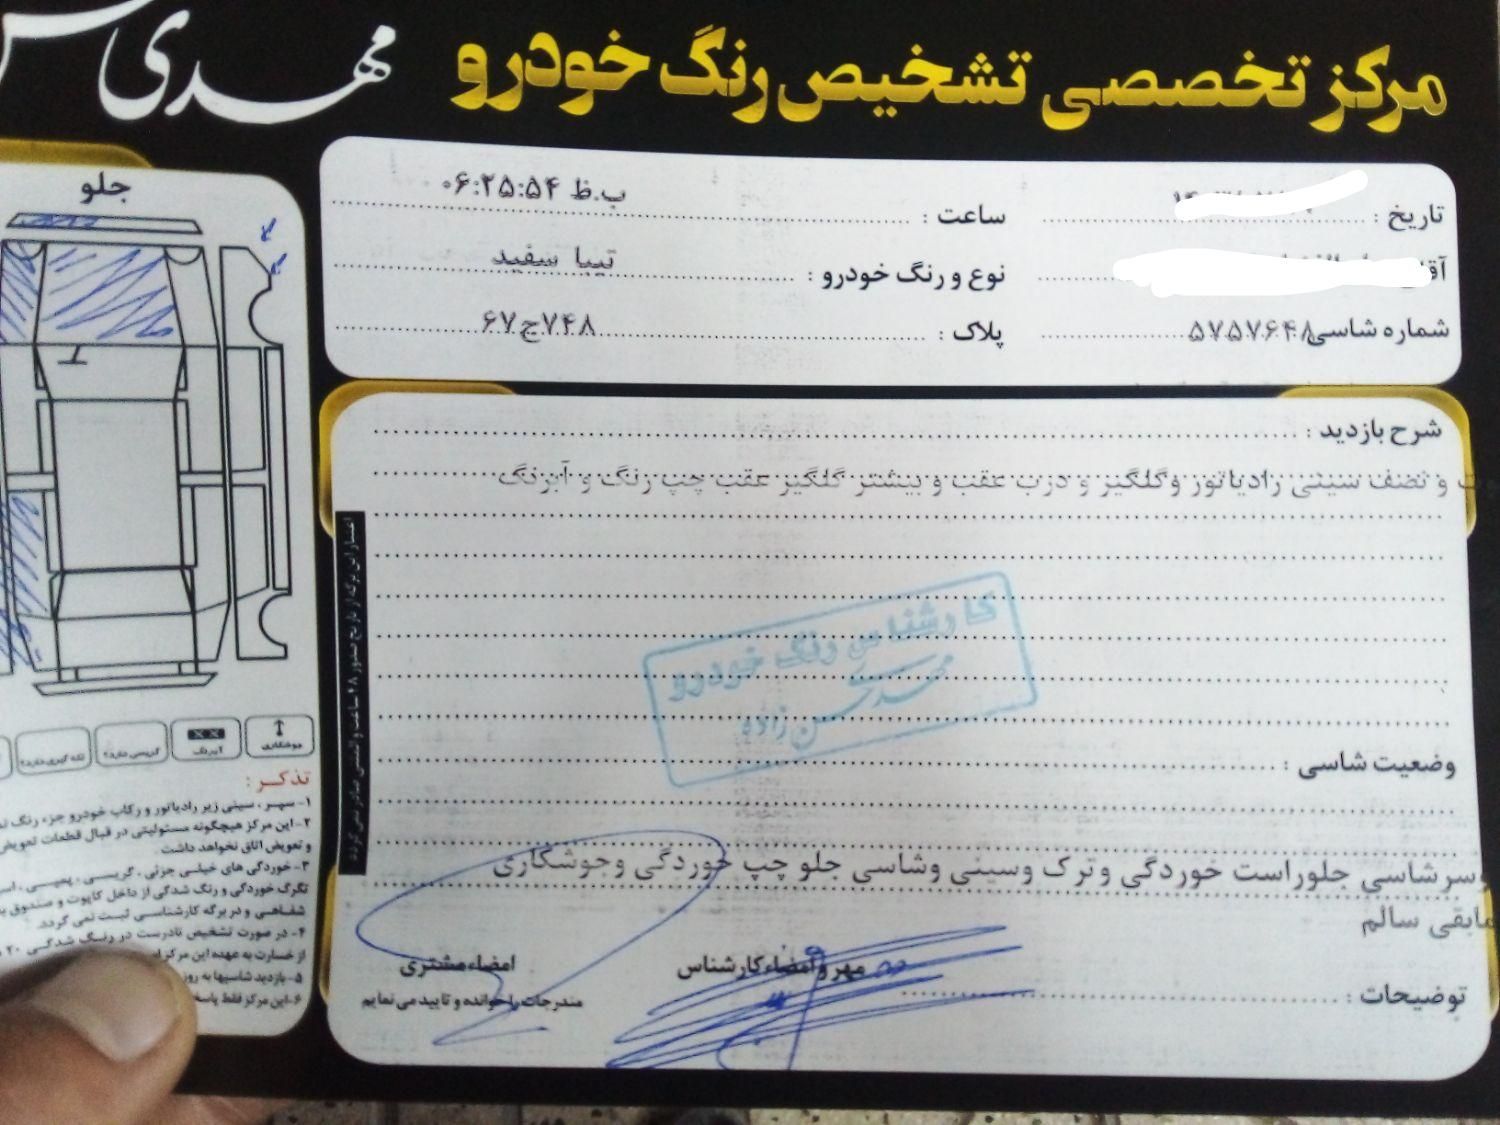 مرکز تخصصی تشخیص رنگ خودرو
مهدی
تاریخ :
ساعت : ۰۶:۲۵:۵۴ ب.ظ
نوع و رنگ خودرو : تیبا سفید
شماره شاسی ۵۷۵۷۶۴۸
پلاک : ۶۷ج۷۴۸
شرح بازدید :
و نصف سینی رادیاتور و گلگیر و درب عقب و بیشتر گلگیر عقب چپ رنگ و آبرنگ
کارشناس رنگ خودرو
مهدی حسن زاده
وضعیت شاسی :
وسرشاسی جلوراست خوردگی وترک وسینی وشاسی جلو چپ خوردگی وجوشکاری
مابقی سالم
مهر و امضاء کارشناس
امضاء مشتری
مندرجات را خوانده و تایید می نمایم
توضیحات :
جلو
جوشکاری
آبرنگ
تذکر :
۱- سپر ، سینی زیر رادیاتور و رکاب خودرو جزء رنگ
۲- این مرکز هیچگونه مسئولیتی در قبال قطعات تعویض
و تعویض اتاق نخواهد داشت
۳- خوردگی های خیلی جزئی ، گریسی ، پمپسی ،
تگرگ خوردگی و رنگ شدگی از داخل کاپوت و صندوق
شفاهی و در برگه کارشناسی ثبت نمی گردد.
۴- در صورت تشخیص نادرست در رنگ شدگی ۲۰
از خسارت به عهده این مرکز
۵- بازدید شاسیها به روز
۶- این مرکز فقط